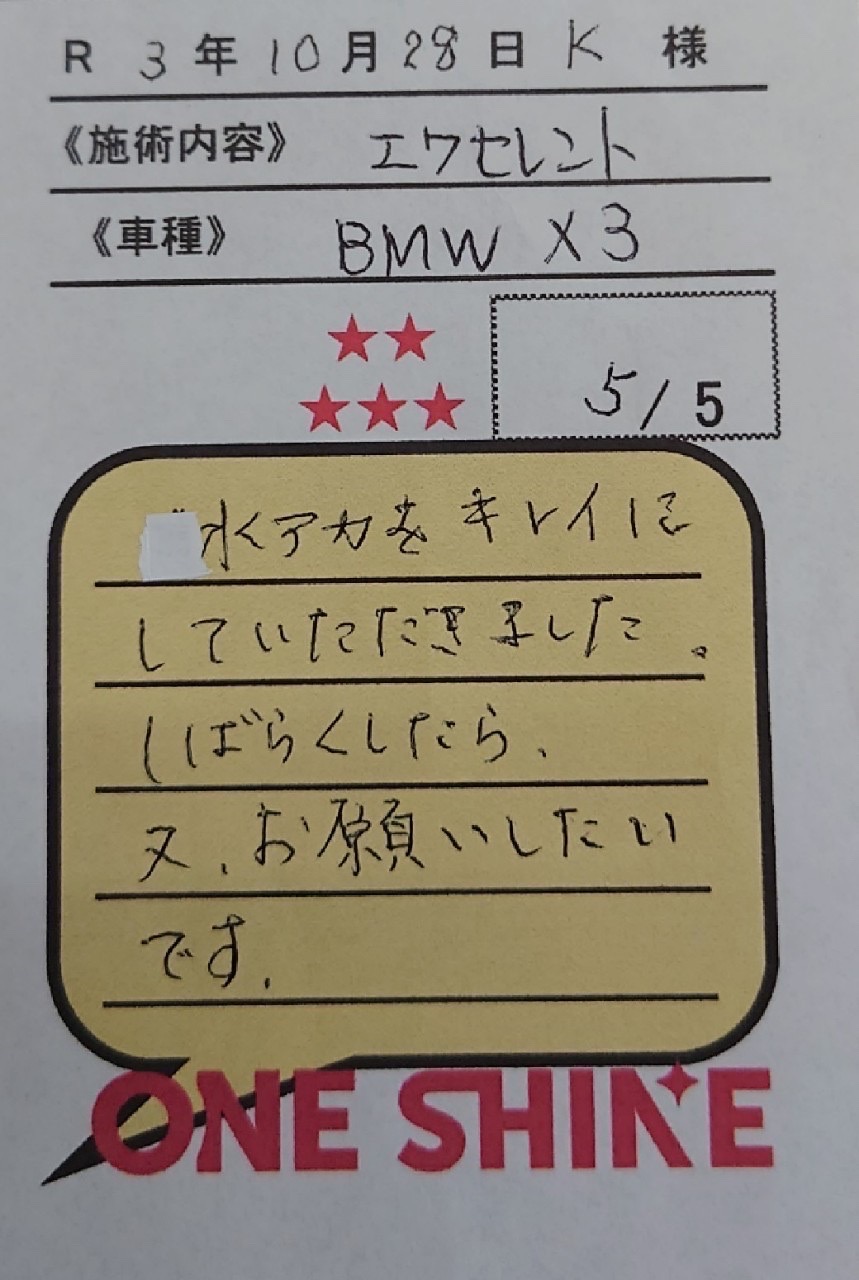 R 3年10月28日 K 様
《施術内容》 エクセレント
《車種》 BMW X3
★★
★★★ 5/5
水アカをキレイに
していただきました。
しばらくしたら、
又、お願いしたい
です、
ONE SHINE